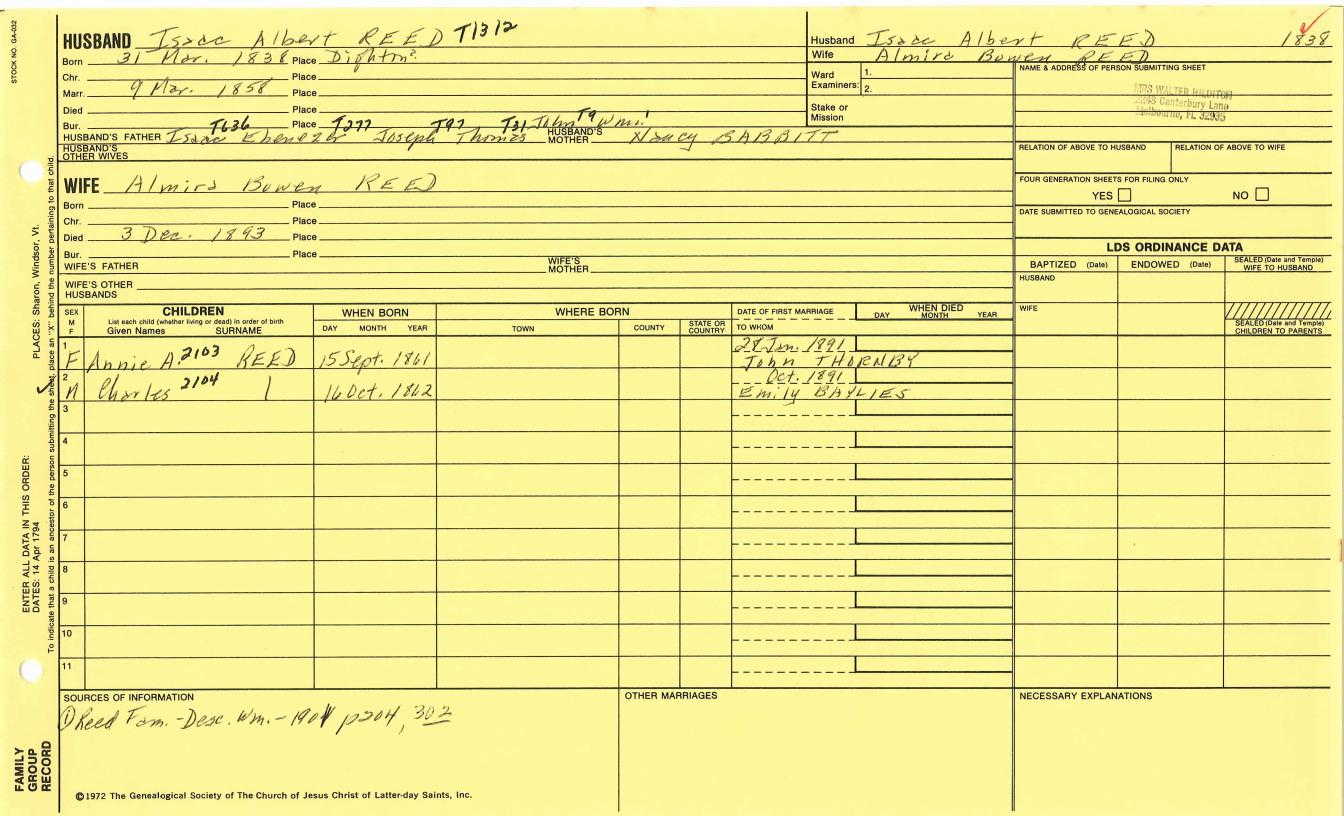 STOCK NO. GA-032
HUSBAND Isaac Albert REED T1312
Born 31 Mar. 1838 Place Dighton?
Chr. Place
Marr. 9 Mar. 1858 Place
Died Place
Bur. Place
T636 T277 T97 T31 John T9 Wm.
HUSBAND'S FATHER Isaac Ebenezer Joseph Thomas HUSBAND'S MOTHER Nancy BABBITT
HUSBAND'S OTHER WIVES
WIFE Almira Bowen REED
Born Place
Chr. Place
Died 3 Dec. 1893 Place
Bur. Place
WIFE'S FATHER WIFE'S MOTHER
WIFE'S OTHER HUSBANDS
Husband Isaac Albert REED 1838
Wife Almira Bowen REED
Ward Examiners: 1. 2.
Stake or Mission
NAME & ADDRESS OF PERSON SUBMITTING SHEET
MRS WALTER HILDITCH
Canterbury Lane
Melbourne, FL 32935
RELATION OF ABOVE TO HUSBAND RELATION OF ABOVE TO WIFE
FOUR GENERATION SHEETS FOR FILING ONLY
YES NO
DATE SUBMITTED TO GENEALOGICAL SOCIETY
LDS ORDINANCE DATA
BAPTIZED (Date) ENDOWED (Date) SEALED (Date and Temple) WIFE TO HUSBAND
HUSBAND
WIFE
SEALED (Date and Temple) CHILDREN TO PARENTS
SEX M F
CHILDREN
List each child (whether living or dead) in order of birth
Given Names SURNAME
WHEN BORN
DAY MONTH YEAR
WHERE BORN
TOWN COUNTY STATE OR COUNTRY
DATE OF FIRST MARRIAGE
TO WHOM
WHEN DIED
DAY MONTH YEAR
1 28 Jan. 1891
F Annie A. 2103 REED 15 Sept. 1861 John THORNBY
2 Oct. 1891
M Charles 2104 | 16 Oct. 1862 Emily BAYLIES
3
4
5
6
7
8
9
10
11
SOURCES OF INFORMATION
① Reed Fam. - Desc. Wm. - 1901 p204, 302
OTHER MARRIAGES
NECESSARY EXPLANATIONS
©1972 The Genealogical Society of The Church of Jesus Christ of Latter-day Saints, Inc.
PLACES: Sharon, Windsor, Vt.
ENTER ALL DATA IN THIS ORDER:
DATES: 14 Apr 1794
To indicate that a child is an ancestor of the person submitting the sheet, place an "X" behind the number pertaining to that child.
FAMILY GROUP RECORD